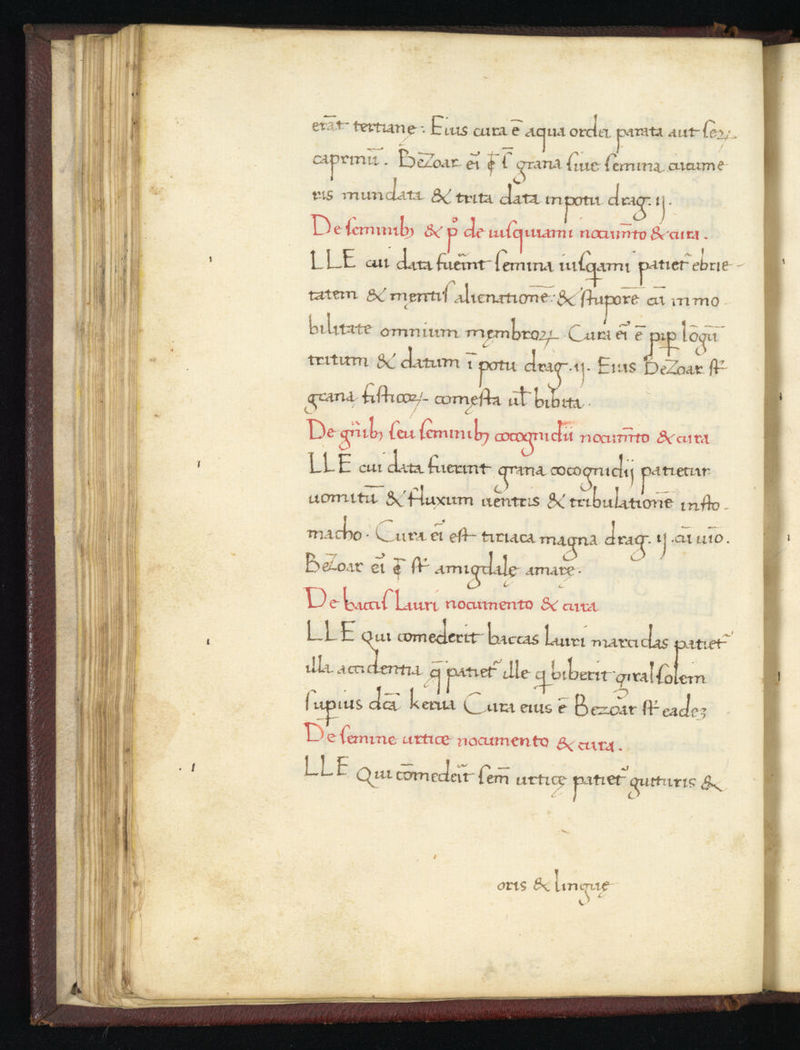 erāt tertiane. Eius cura ē aqua ordei parata aut
caprinū. BeZoar ei ē ſ grana ſiue ſemina cucume
ris mundata & trita data in potu drag. ij.
De ſeminibꝫ & p̊ de iuſquiami nocumr̄to & cura.
LLE cui data fuer̄int ſemina iuſq̄ami patiet̄ ebrie-
tatem & mentiſ alienationē & ſtuporē cū inmo
bilitate omnium membroꝝ. Cura ei ē pip̄ lōgū
tritum & datum ī potu drag. ij. Eius BeZoar ſt̄
grana fiſticoꝝ comeſta ul̄ bibita.
De gn̄ibꝫ ſeu ſeminibꝫ cocognidii nocum̄to & cura
LLE cui data fuerint grana cocognidij patietur
uomitū & fluxum uentris & tribulationē in ſto-
macho. Cura ei eſt tiriaca magna drag. ij. cū uīo.
BeZoar ei ē ſt̄ amigdale amare.
De baccíſ Lauri nocumento & cura
LLE Qui comederit baccas Lauri marcidas patiet̄
illa accidentia q̄ patiet̄ ille q̄ biberit giralſolem
ſupius dc̄ā kerua Cura eius ē Bezoar ſt̄ eadeꝫ
De ſemine urtice nocumento & cura.
LLE Qui cōmedeīt ſem̄ urtice patiet̄ gutturis &
oris & lingue